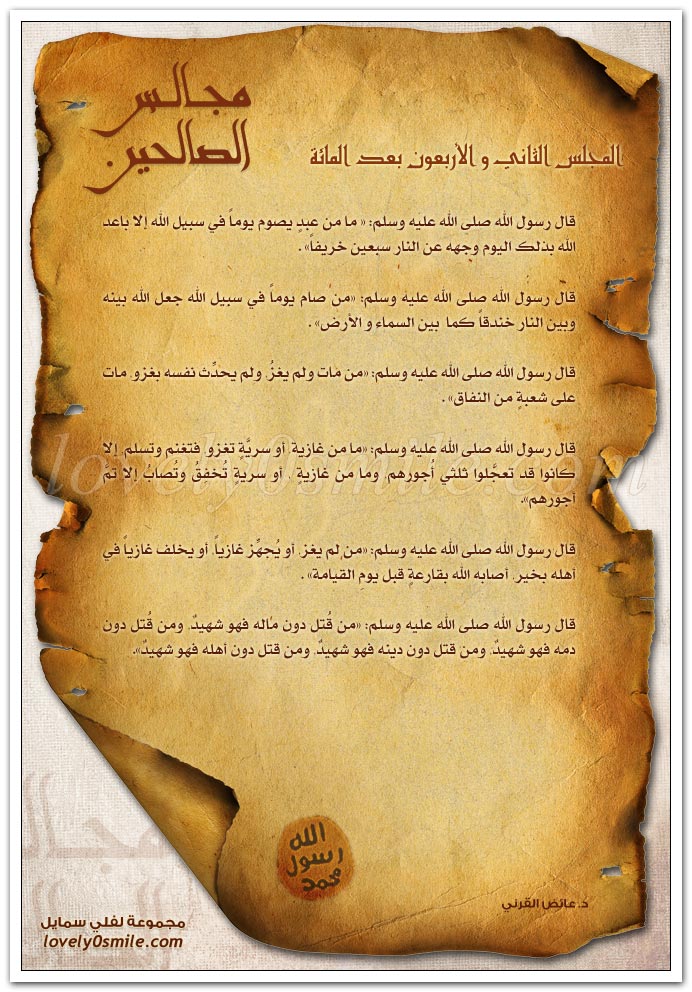 مجالس
الصالحين
المجلس الثاني و الأربعون بعد المائة
قال رسول الله صلى الله عليه وسلم: « ما من عبدٍ يصوم يوماً في سبيل الله إلا باعد
الله بذلك اليوم وجهه عن النار سبعين خريفاً» .
قال رسول الله صلى الله عليه وسلم: «من صام يوماً في سبيل الله جعل الله بينه
وبين النار خندقاً كما بين السماء و الأرض» .
قال رسول الله صلى الله عليه وسلم: «من مات ولم يغزُ، ولم يحدِّث نفسه بغزو، مات
على شعبةٍ من النفاق» .
قال رسول الله صلى الله عليه وسلم: «ما من غازية، أو سريَّةٍ تغزو فتغنم وتسلم، إلا
كانوا قد تعجَّلوا ثلثي أجورهم، وما من غازيةٍ ، أو سريةٍ تُخفِقُ وتُصابُ إلا تمَّ
أجورهم».
قال رسول الله صلى الله عليه وسلم: «من لم يغز، أو يُجهِّز غازياً، أو يخلف غازياً في
أهله بخير، أصابه الله بقارعةٍ قبل يوم القيامة» .
قال رسول الله صلى الله عليه وسلم: «من قُتل دون ماله فهو شهيدٌ، ومن قُتل دون
دمه فهو شهيدٌ، ومن قتل دون دينه فهو شهيدٌ، ومن قتل دون أهله فهو شهيدٌ».
lovely0smile.com
الله
رسول
محمد
د.عائض القرني
مجموعة لفلي سمايل
lovely0smile.com